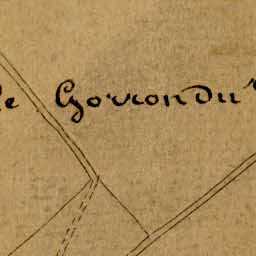 le Gorron du